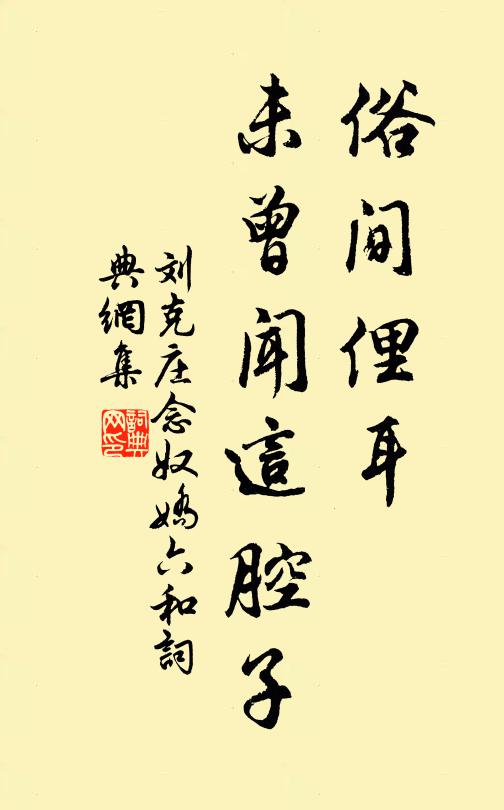 俗間俚耳
未曾聞這腔子
刘克庄念奴嬌六和詞
典網集
詞典網印